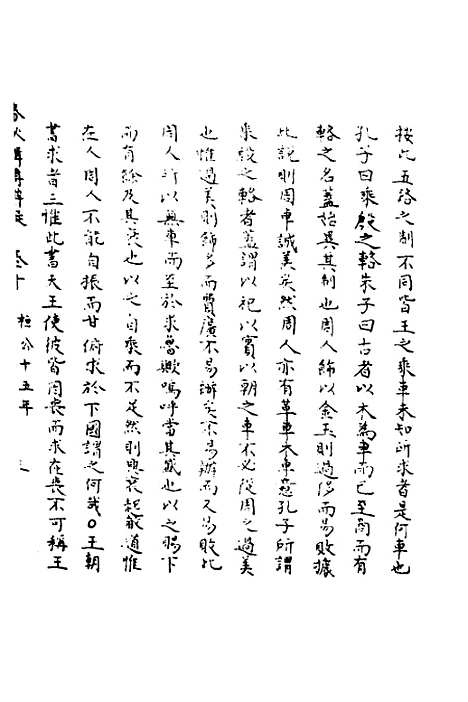 按此五路之制不同皆王之乘車未知所求者是何車也
孔子曰乘殷之輅朱子曰古者以木為車而已至商而有
輅之名蓋始異其制也周人飾以金玉則過侈而易敗據
此說則周車誠美矣然周人亦有革車木車惡孔子所謂
乘殷之輅者蓋謂以祀以賓以朝之車不必從周之過美
也惟過美則飾多而費廣不易辦矣不易辦而又易敗此
周人所以無車而至於求魯歟嗚呼當其盛也以之賜下
而有餘及其衰也以之自乘而不足然則興衰起敝道惟
在人周人不能自振而甘俯求於下國謂之何哉○王朝
書求者三惟此書天王使彼皆因喪而求在喪不可稱王
春秋輯傳辨疑 卷十 桓公十五年